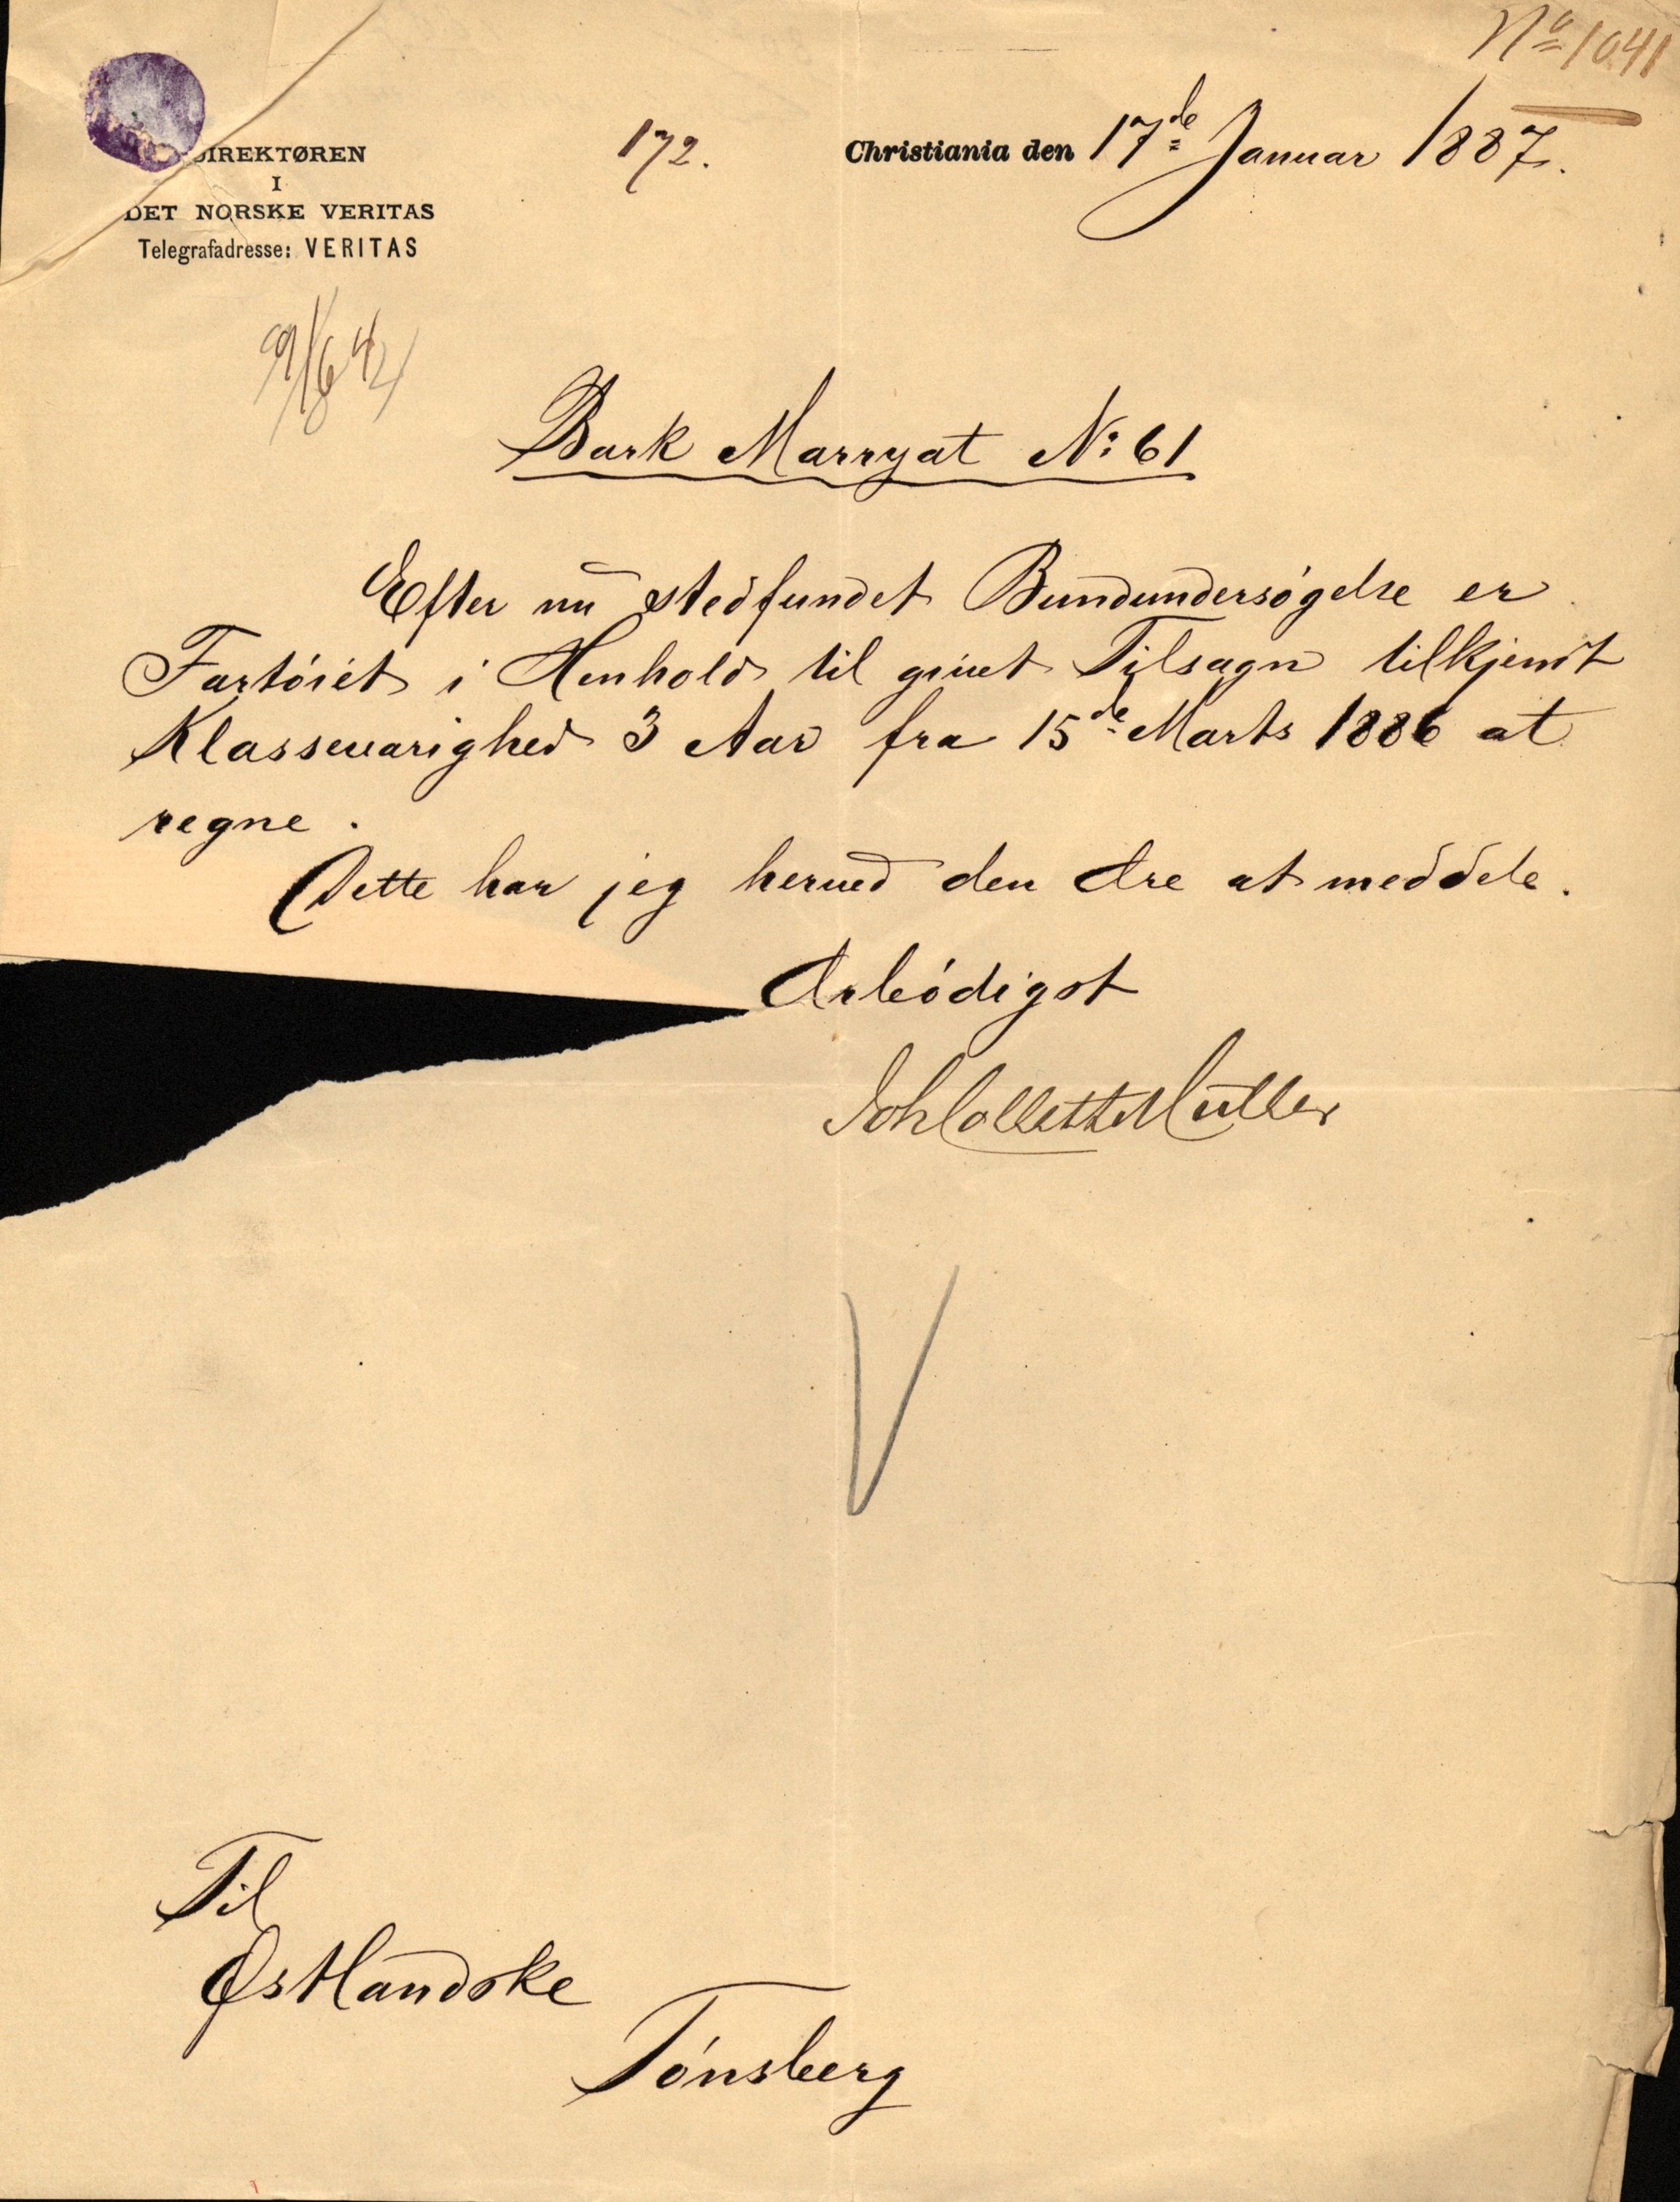 No 1041
DIREKTØREN
I
DET NORSKE VERITAS
Telegrafadresse: VERITAS
172.
Christiania den 17de Januar 1887.
Bark Marryat No 61
Efter nu stedfundet Bundundersøgelse er
Fartøiet i Henhold til givet Tilsagn tilkjendt
Klassevarighed 3 Aar fra 15de Marts 1886 at
regne.
Dette har jeg herved den Ære at meddele.
Ærbødigst
Joh Collett Müller
Til
Østlandske
Tønsberg